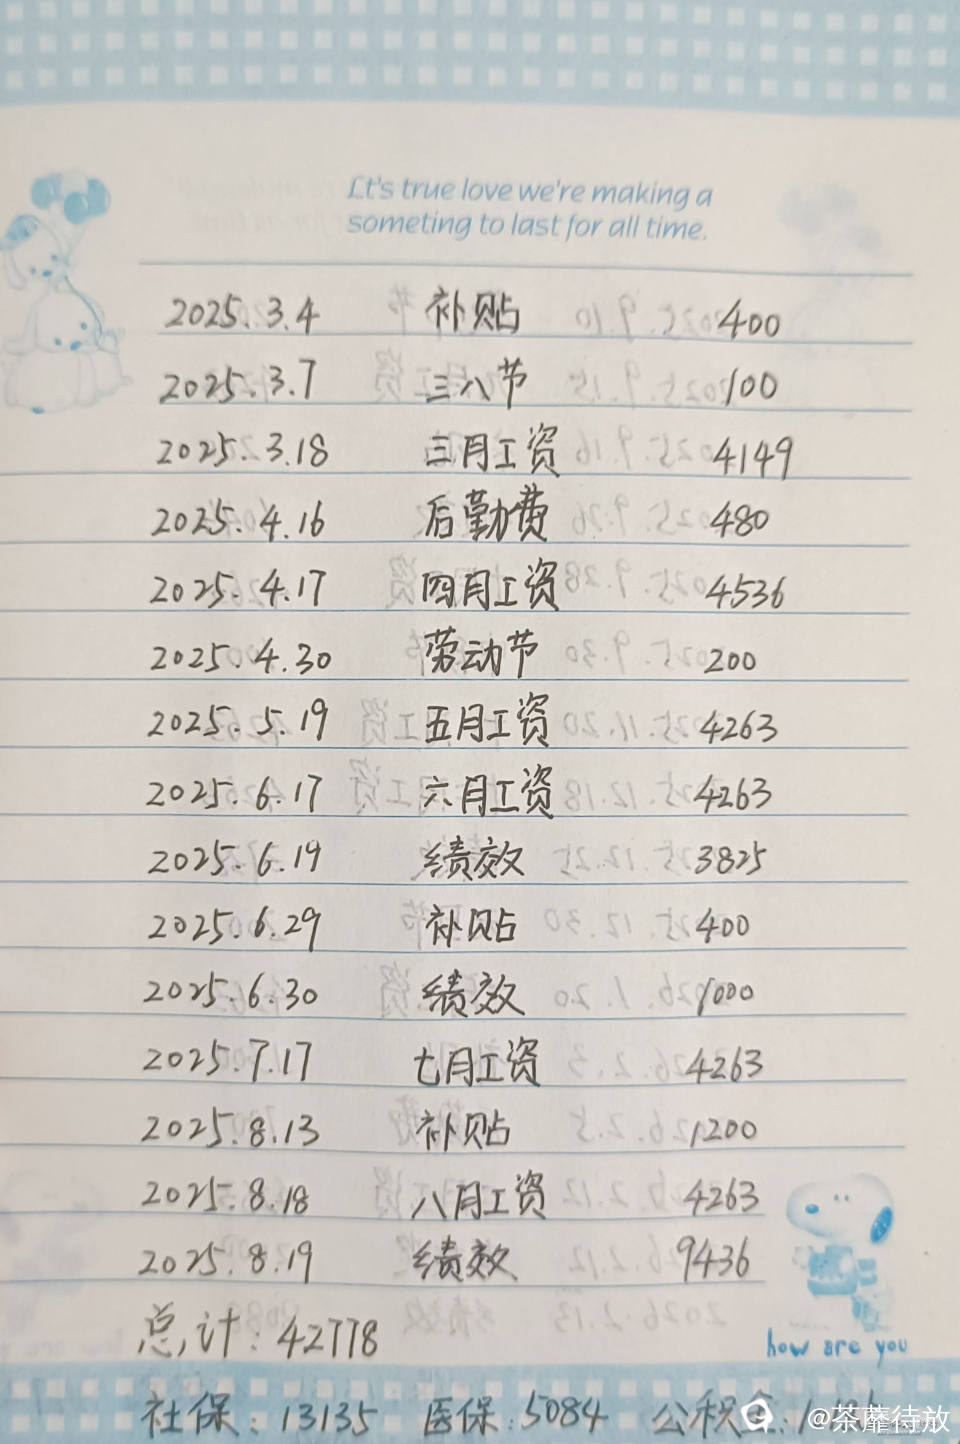 Let's true love we're making a
someting to last for all time.
2025.3.4 补贴 400
2025.3.7 三八节 100
2025.3.18 三月工资 4149
2025.4.16 后勤费 480
2025.4.17 四月工资 4536
2025.4.30 劳动节 200
2025.5.19 五月工资 4263
2025.6.17 六月工资 4263
2025.6.19 绩效 3825
2025.6.29 补贴 400
2025.6.30 绩效 1000
2025.7.17 七月工资 4263
2025.8.13 补贴 1200
2025.8.18 八月工资 4263
2025.8.19 绩效 9436
总计:42778
how are you
社保:13135 医保:5084 公积金:
@荼蘼待放